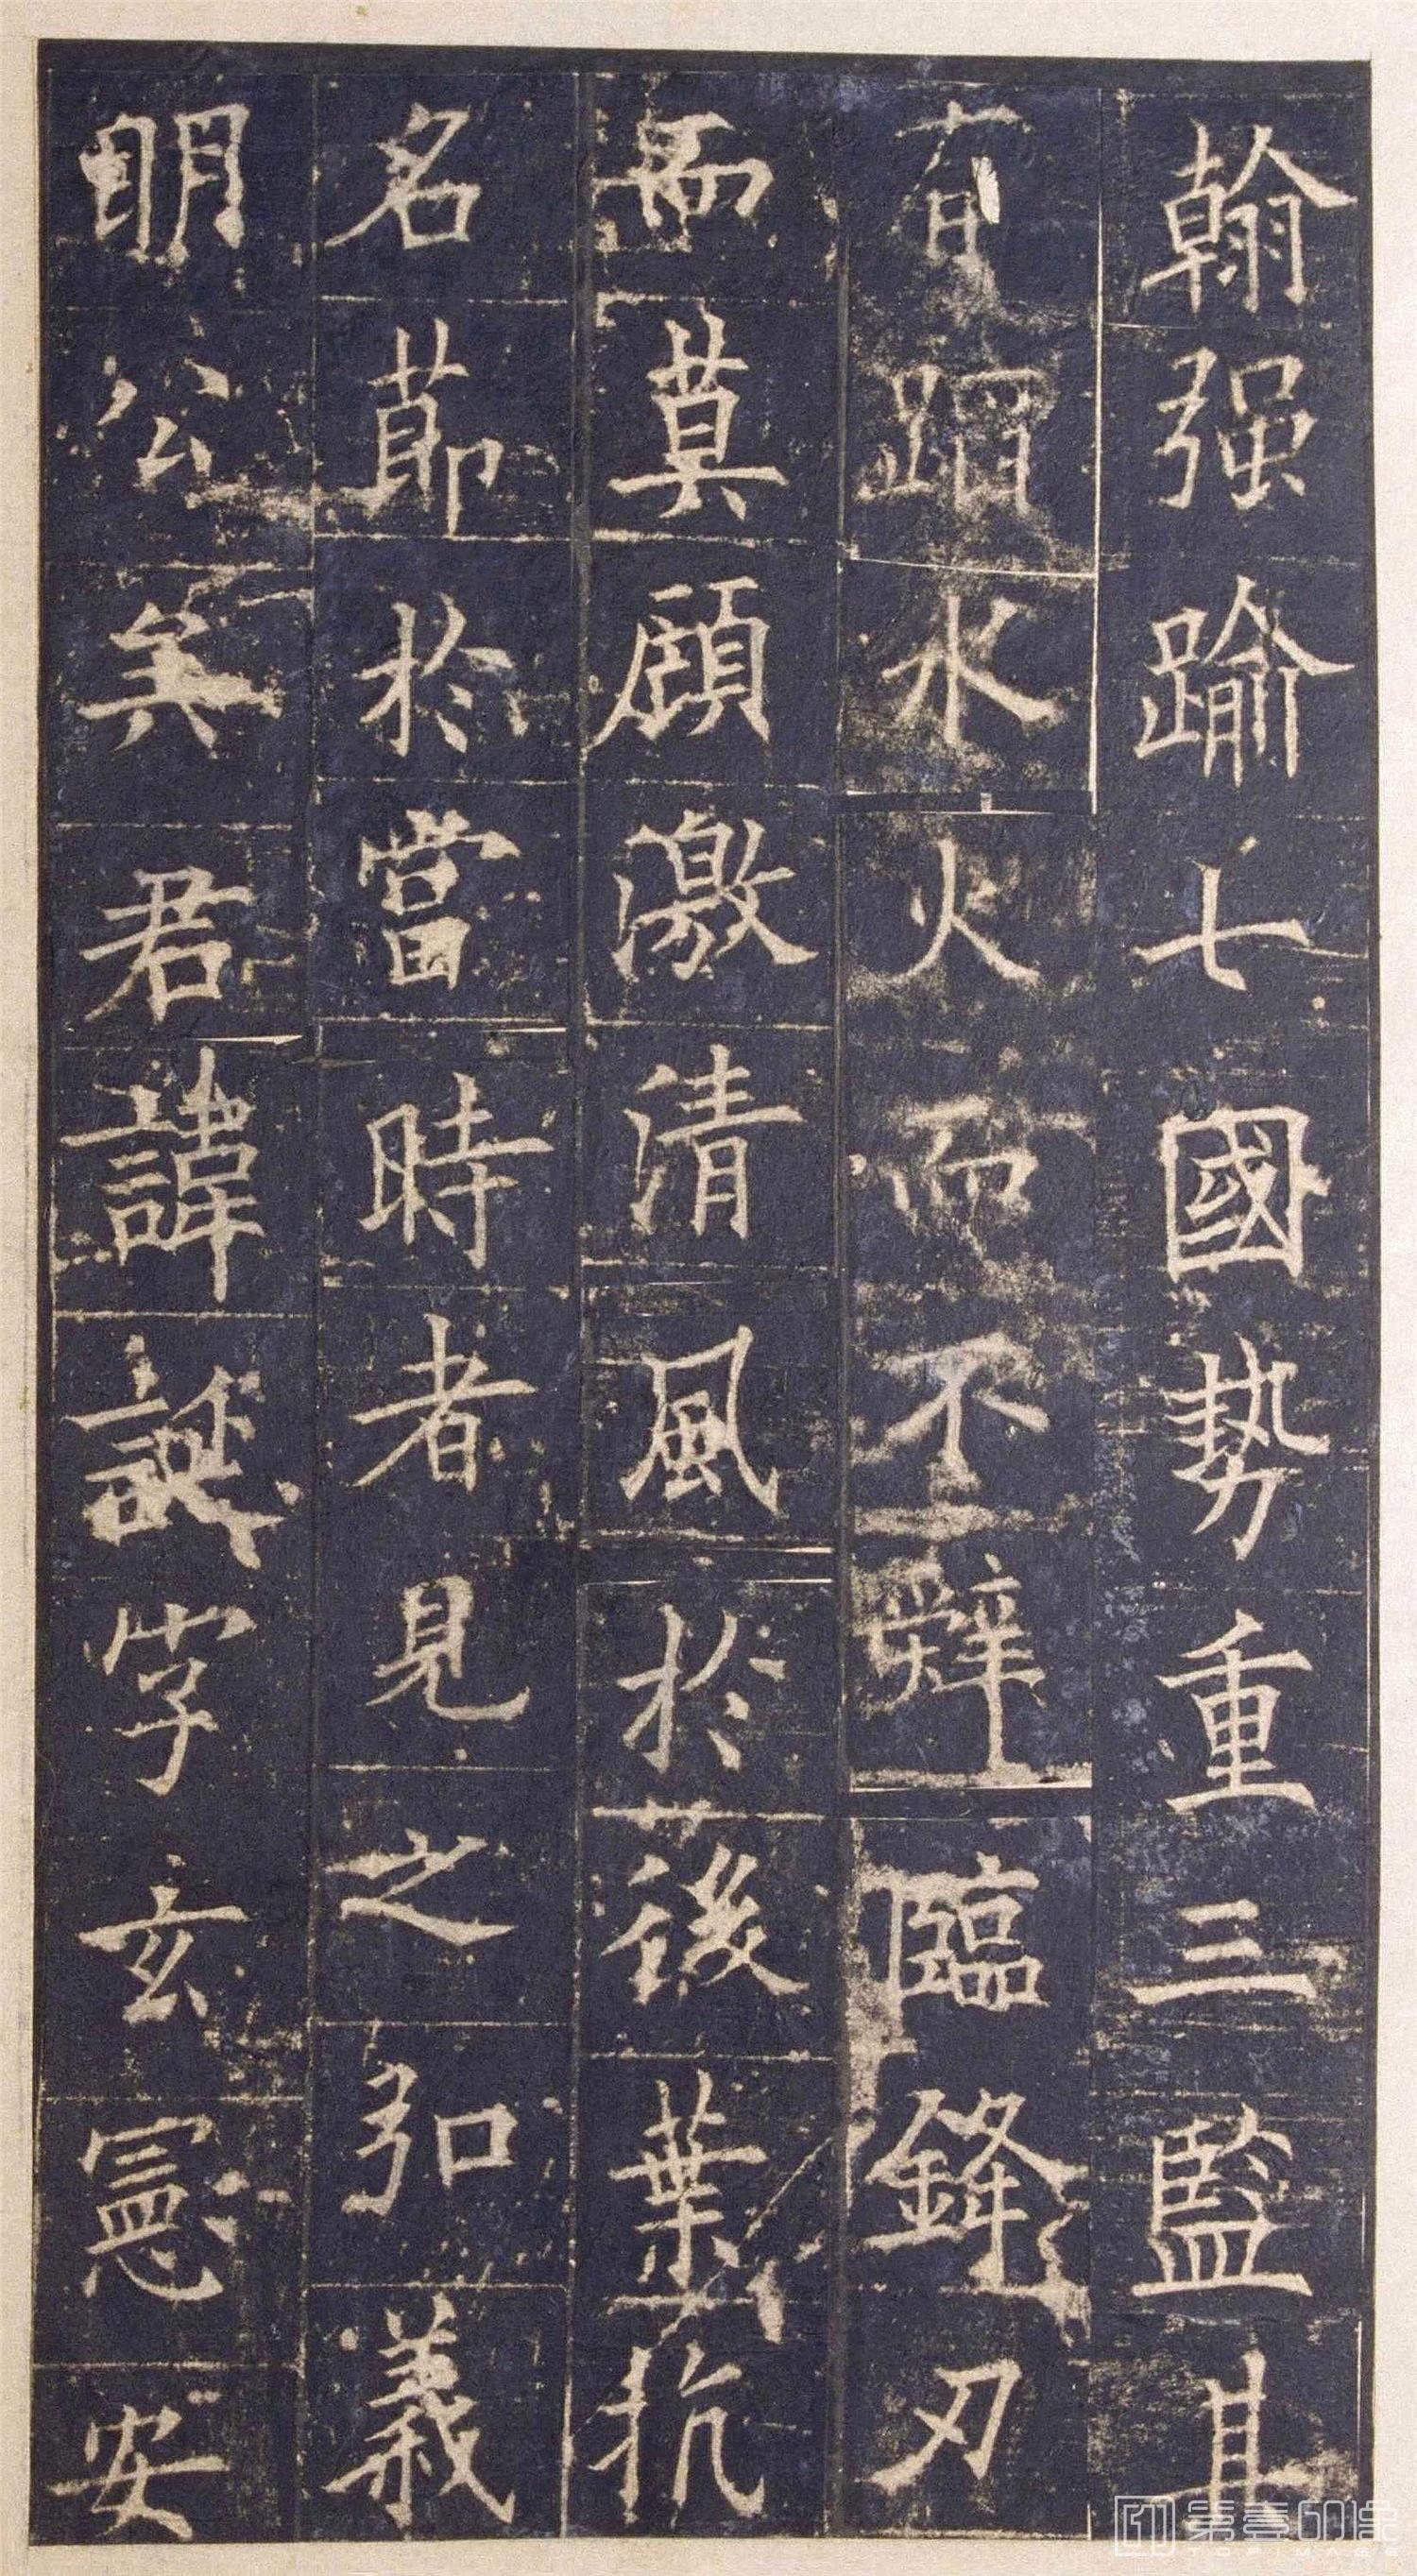 翰强踰七國勢重三監其
有蹈水火而不辭臨鋒刃
而莫顧激清風於後葉抗
名莭於當時者見之弘義
明公矣君諱誕字玄憲安
第壹印象